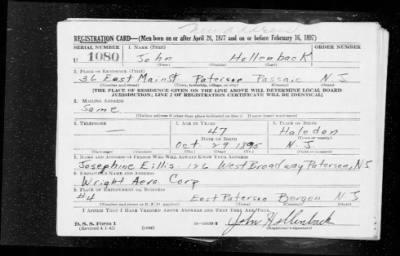 REGISTRATION CARD—(Men born on or after April 28, 1877 and on or before February 16, 1897)
SERIAL NUMBER 1. NAME (Print)
U 1080 John Hollenback
2. PLACE OF RESIDENCE (Print)
36 East Main St Paterson Passaic N.J
[THE PLACE OF RESIDENCE GIVEN ON THE LINE ABOVE WILL DETERMINE LOCAL BOARD
JURISDICTION; LINE 2 OF REGISTRATION CERTIFICATE WILL BE IDENTICAL]
3. MAILING ADDRESS
Same
4. TELEPHONE 5. AGE IN YEARS 6. PLACE OF BIRTH
47 Haledon
DATE OF BIRTH
Oct 29 1895 N.J
7. NAME AND ADDRESS OF PERSON WHO WILL ALWAYS KNOW YOUR ADDRESS
Josephine Eillis 126 West Broadway Paterson, NJ
8. EMPLOYER'S NAME AND ADDRESS
Wright Aero. Corp
9. PLACE OF EMPLOYMENT OR BUSINESS
#4 East Paterson Bergen N.J
I AFFIRM THAT I HAVE VERIFIED ABOVE ANSWERS AND THAT THEY ARE TRUE.
D. S. S. Form 1
(Revised 4-1-42)
John Hollenback